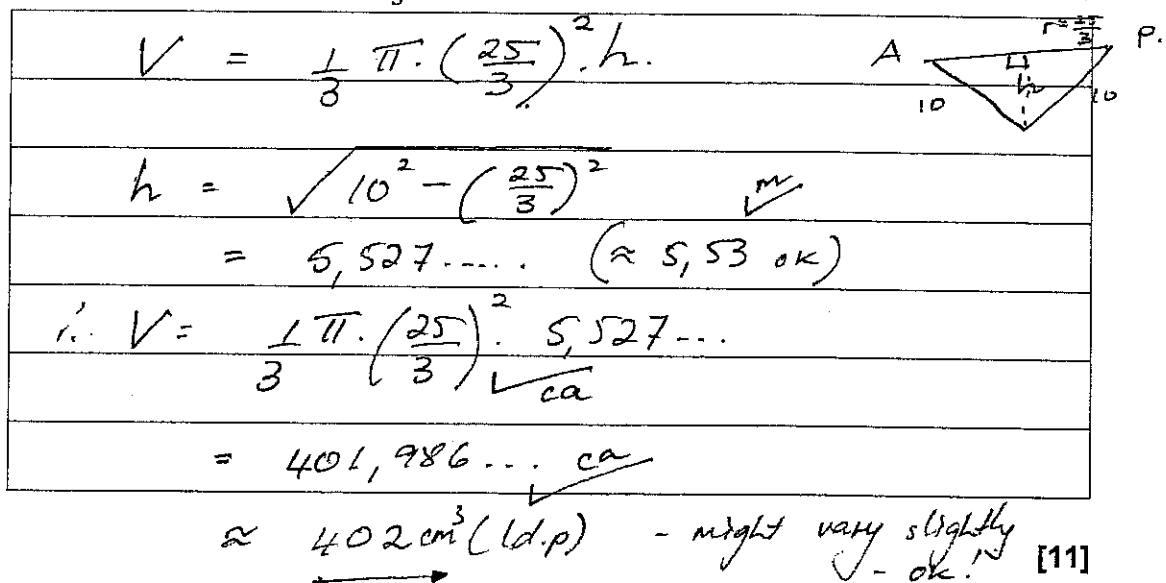 V = 1/3 π. (25/3)². h.
A r = 25/3 P.
10 h 10
h = √(10² − (25/3)²) ✓m
= 5,527..... (≈ 5,53 ok)
∴ V = 1/3 π. (25/3)². 5,527... ✓ca
= 401,986... ca ✓
≈ 402 cm³ (1d.p) - might vary slightly
- ok! [11]